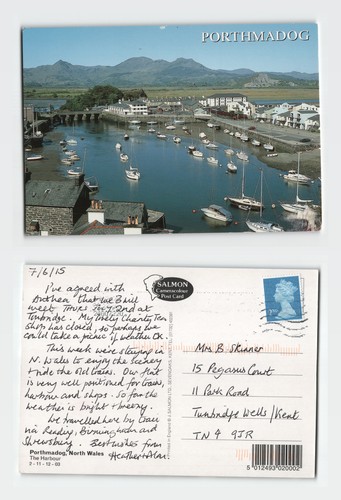 PORTHMADOG
7/6/15
I've agreed with
Andrea that we 3 will
meet Thurs July 2nd at
Tonbridge. My lovely Charity Tea
Shop has closed, so perhaps we
could take a picnic if weather OK.
This week we're staying in
N. Wales to enjoy the scenery
+ ride the old trains. Our flat
is very well positioned for trains,
harbour and shops. So far the
weather is bright + breezy.
We travelled here by train
via Reading, Birmingham and
Shrewsbury. Best wishes from
Heather + Alan
Porthmadog, North Wales
The Harbour
2-11-12-03
SALMON
Cameracolour
Post Card
Mrs B. Skinner
15 Pegasus Court
11 Park Road
Tunbridge Wells / Kent.
TN4 9JR
5 012493 020002